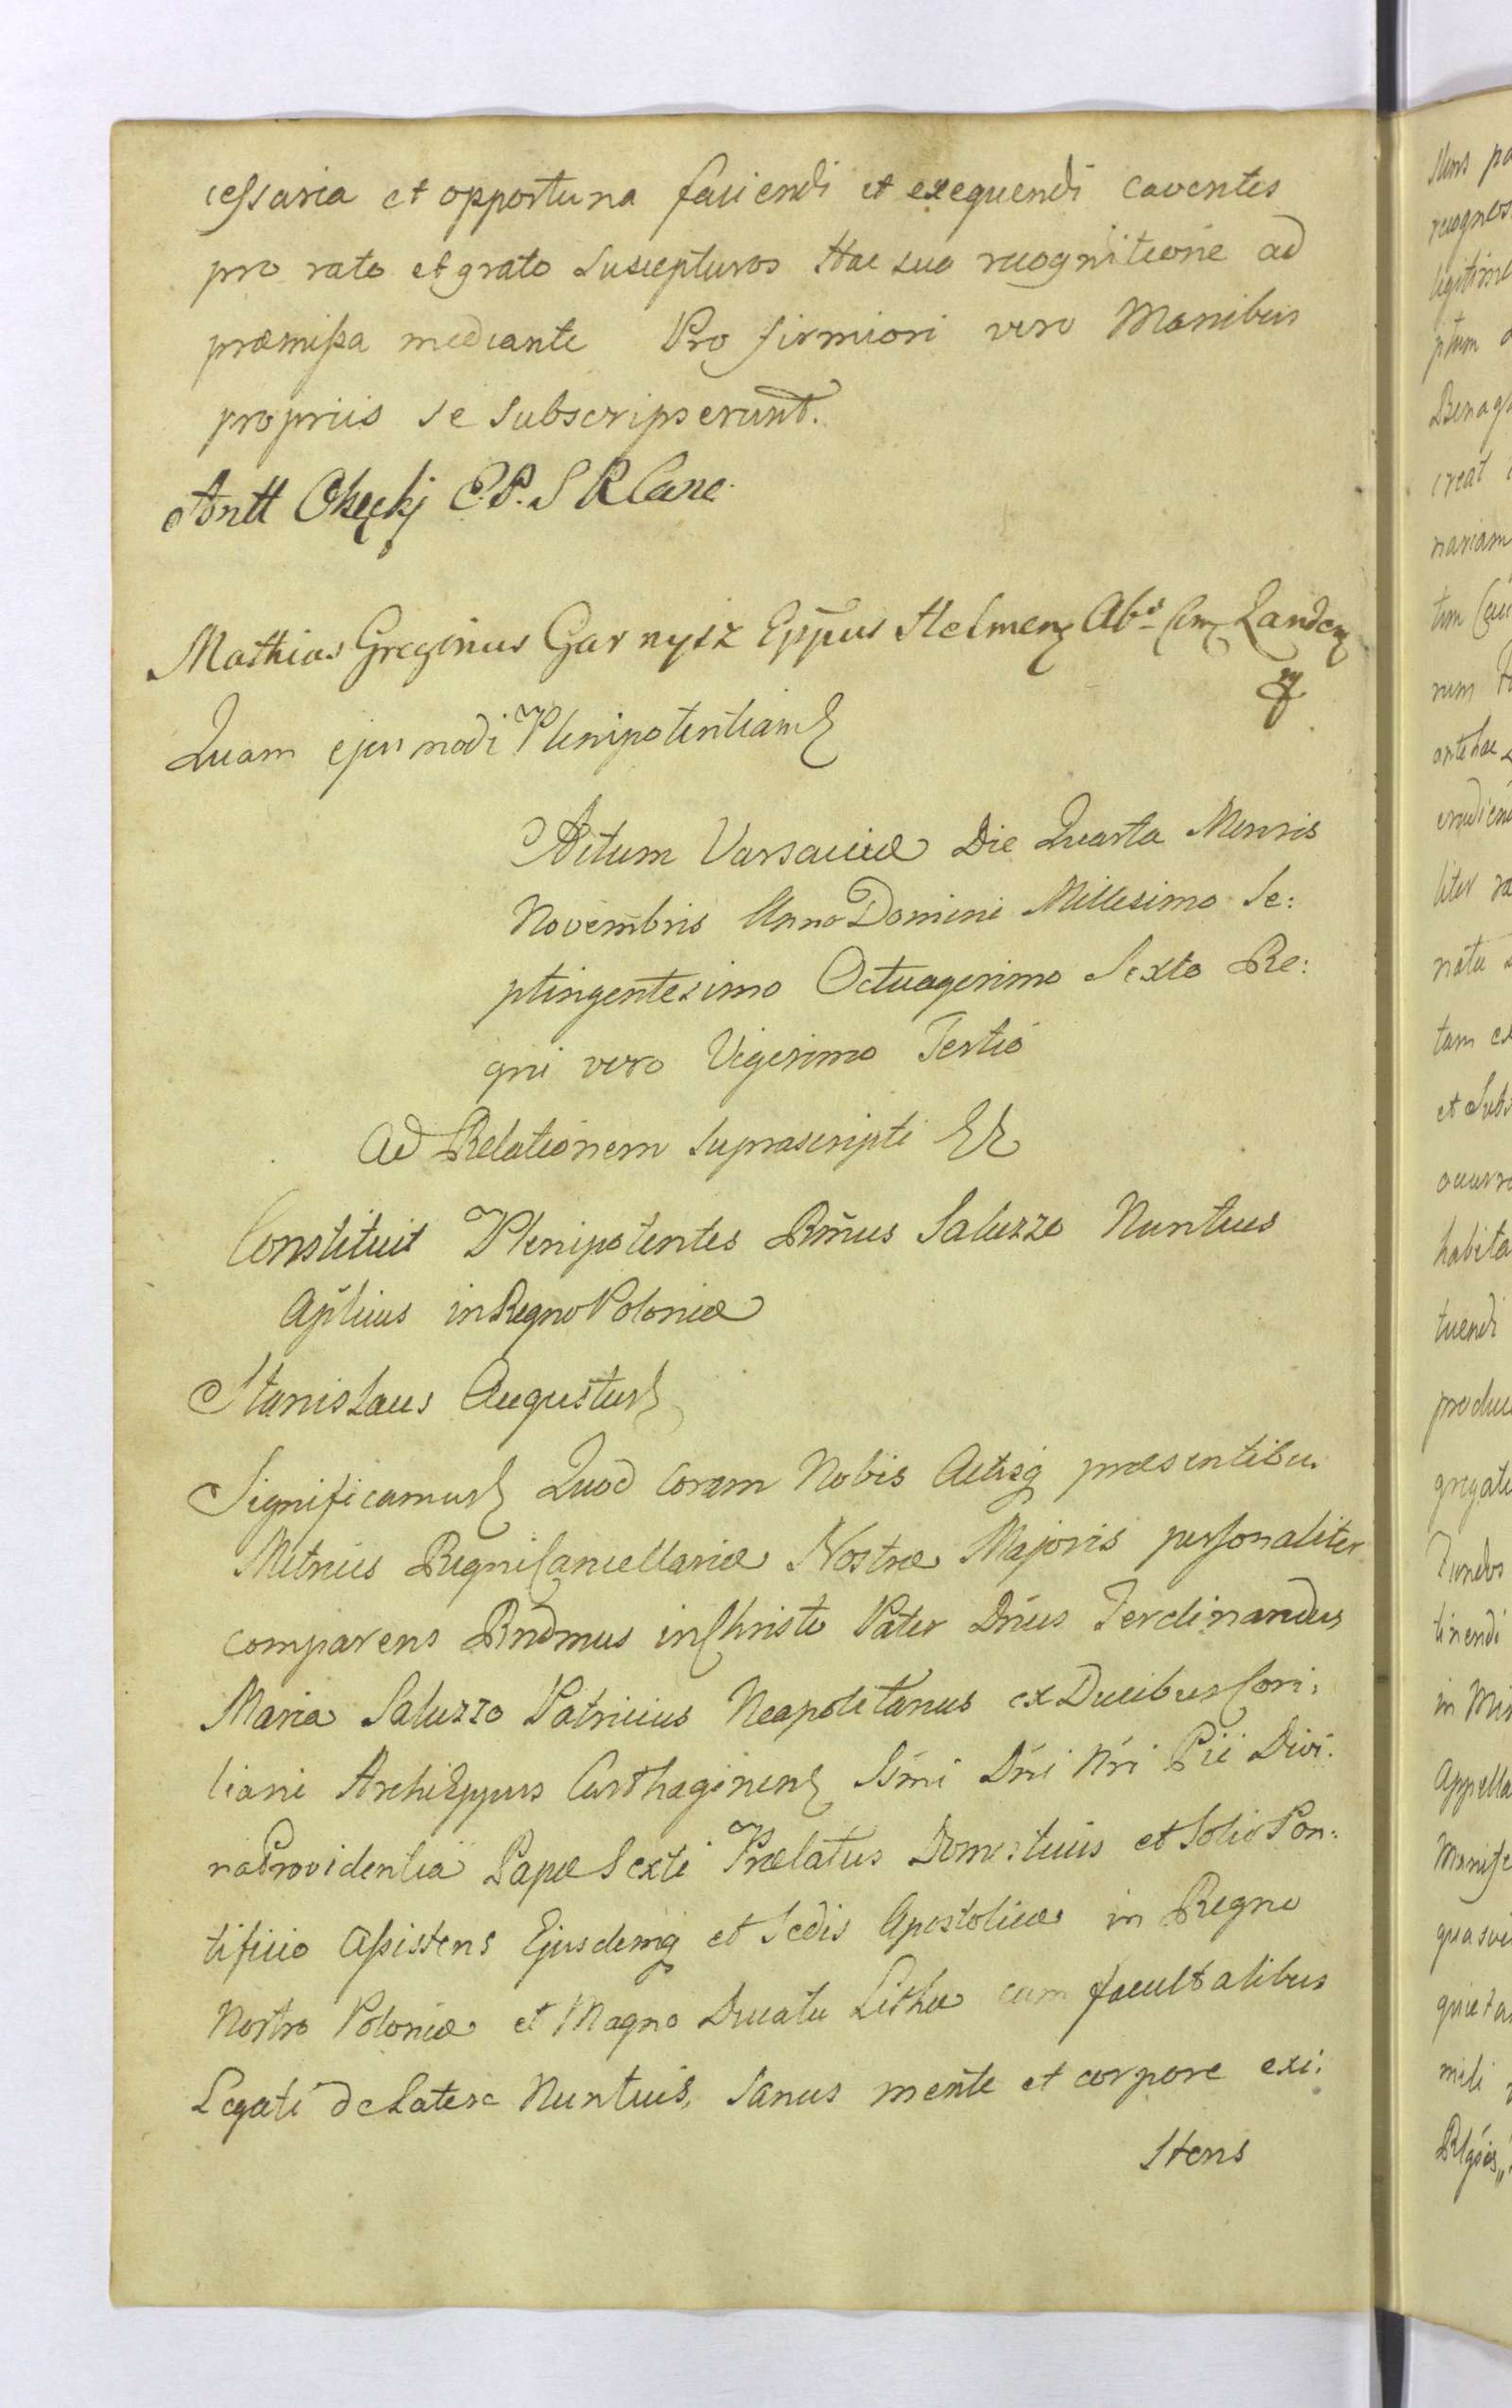 cessaria et opportuna faciendi et exequendi caventes
pro rato et grato suscepturos Hac sua recognitione ad
præmissa mediante Pro firmiori vero Manibus
propriis se subscripserunt.
Antt Okęckj E.P. S R Canc.
Mathias Greginus Garnysz Eppus Helmen Abs Com Landen
mp
Quam ejusmodi Plenipotentiam
Actum Varsaviæ Die Quarta Mensis
Novembris Anno Domini Millesimo Se:
ptingentesimo Octuagesimo Sexto Re:
gni vero Vigesimo Tertio
Ad Relationem suprascripti
Constituit Plenipotentes Rm̃us Saluzzo Nuntius
Apl̃icus in Regno Poloniæ
Stanislaus Augustus
Significamus Quod Coram Nobis Actisq præsentibus
Metrices Regni Cancellariæ Nostræ Majoris personaliter
comparens Rndmus in Christo Pater Dñus Ferdinandus
Maria Saluzzo Patricius Neapolitanus ex Ducibus Cori:
liani ArchiEppus Carthaginens Ssmi Dñi Nri Pii Divi:
na Providentia Papæ Sexti Prælatus Domesticus et Solio Pon:
tificio Assistens Ejusdemq et Sedis Apostolicæ in Regno
Nostro Poloniæ et Magno Ducatu Lithæ cum facultatibus
Legati de Latere Nuntius, Sanus mente et corpore exi:
stens